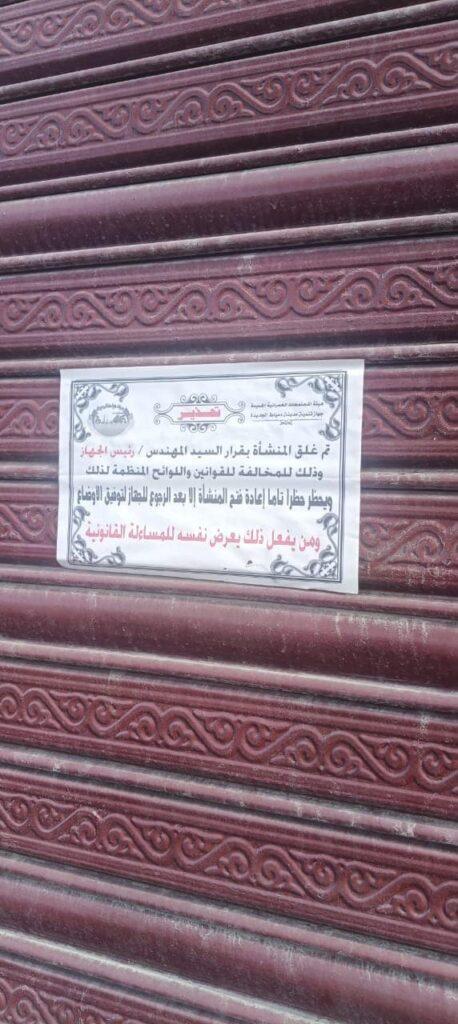 هيئة المجتمعات العمرانية الجديدة
جهاز تنمية مدينة دمياط الجديدة
تحذير
تم غلق المنشأة بقرار السيد المهندس / رئيس الجهاز
وذلك للمخالفة للقوانين واللوائح المنظمة لذلك
ويحظر حظرا تاما إعادة فتح المنشأة إلا بعد الرجوع للجهاز لتوفيق الاوضاع
ومن يفعل ذلك يعرض نفسه للمساءلة القانونية